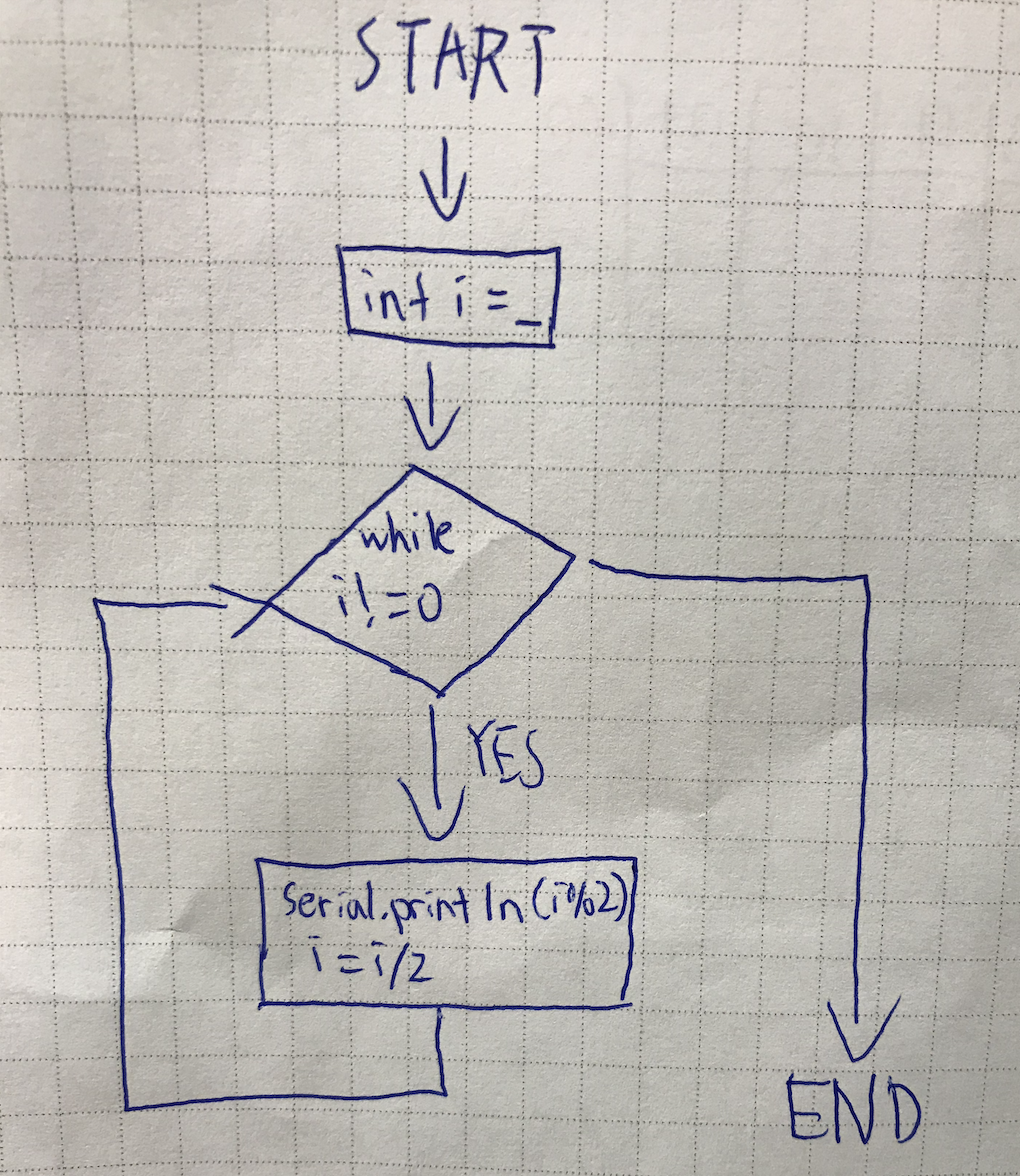 START
int i = _
while
i!=0
YES
Serial.println(i%2)
i=i/2
END